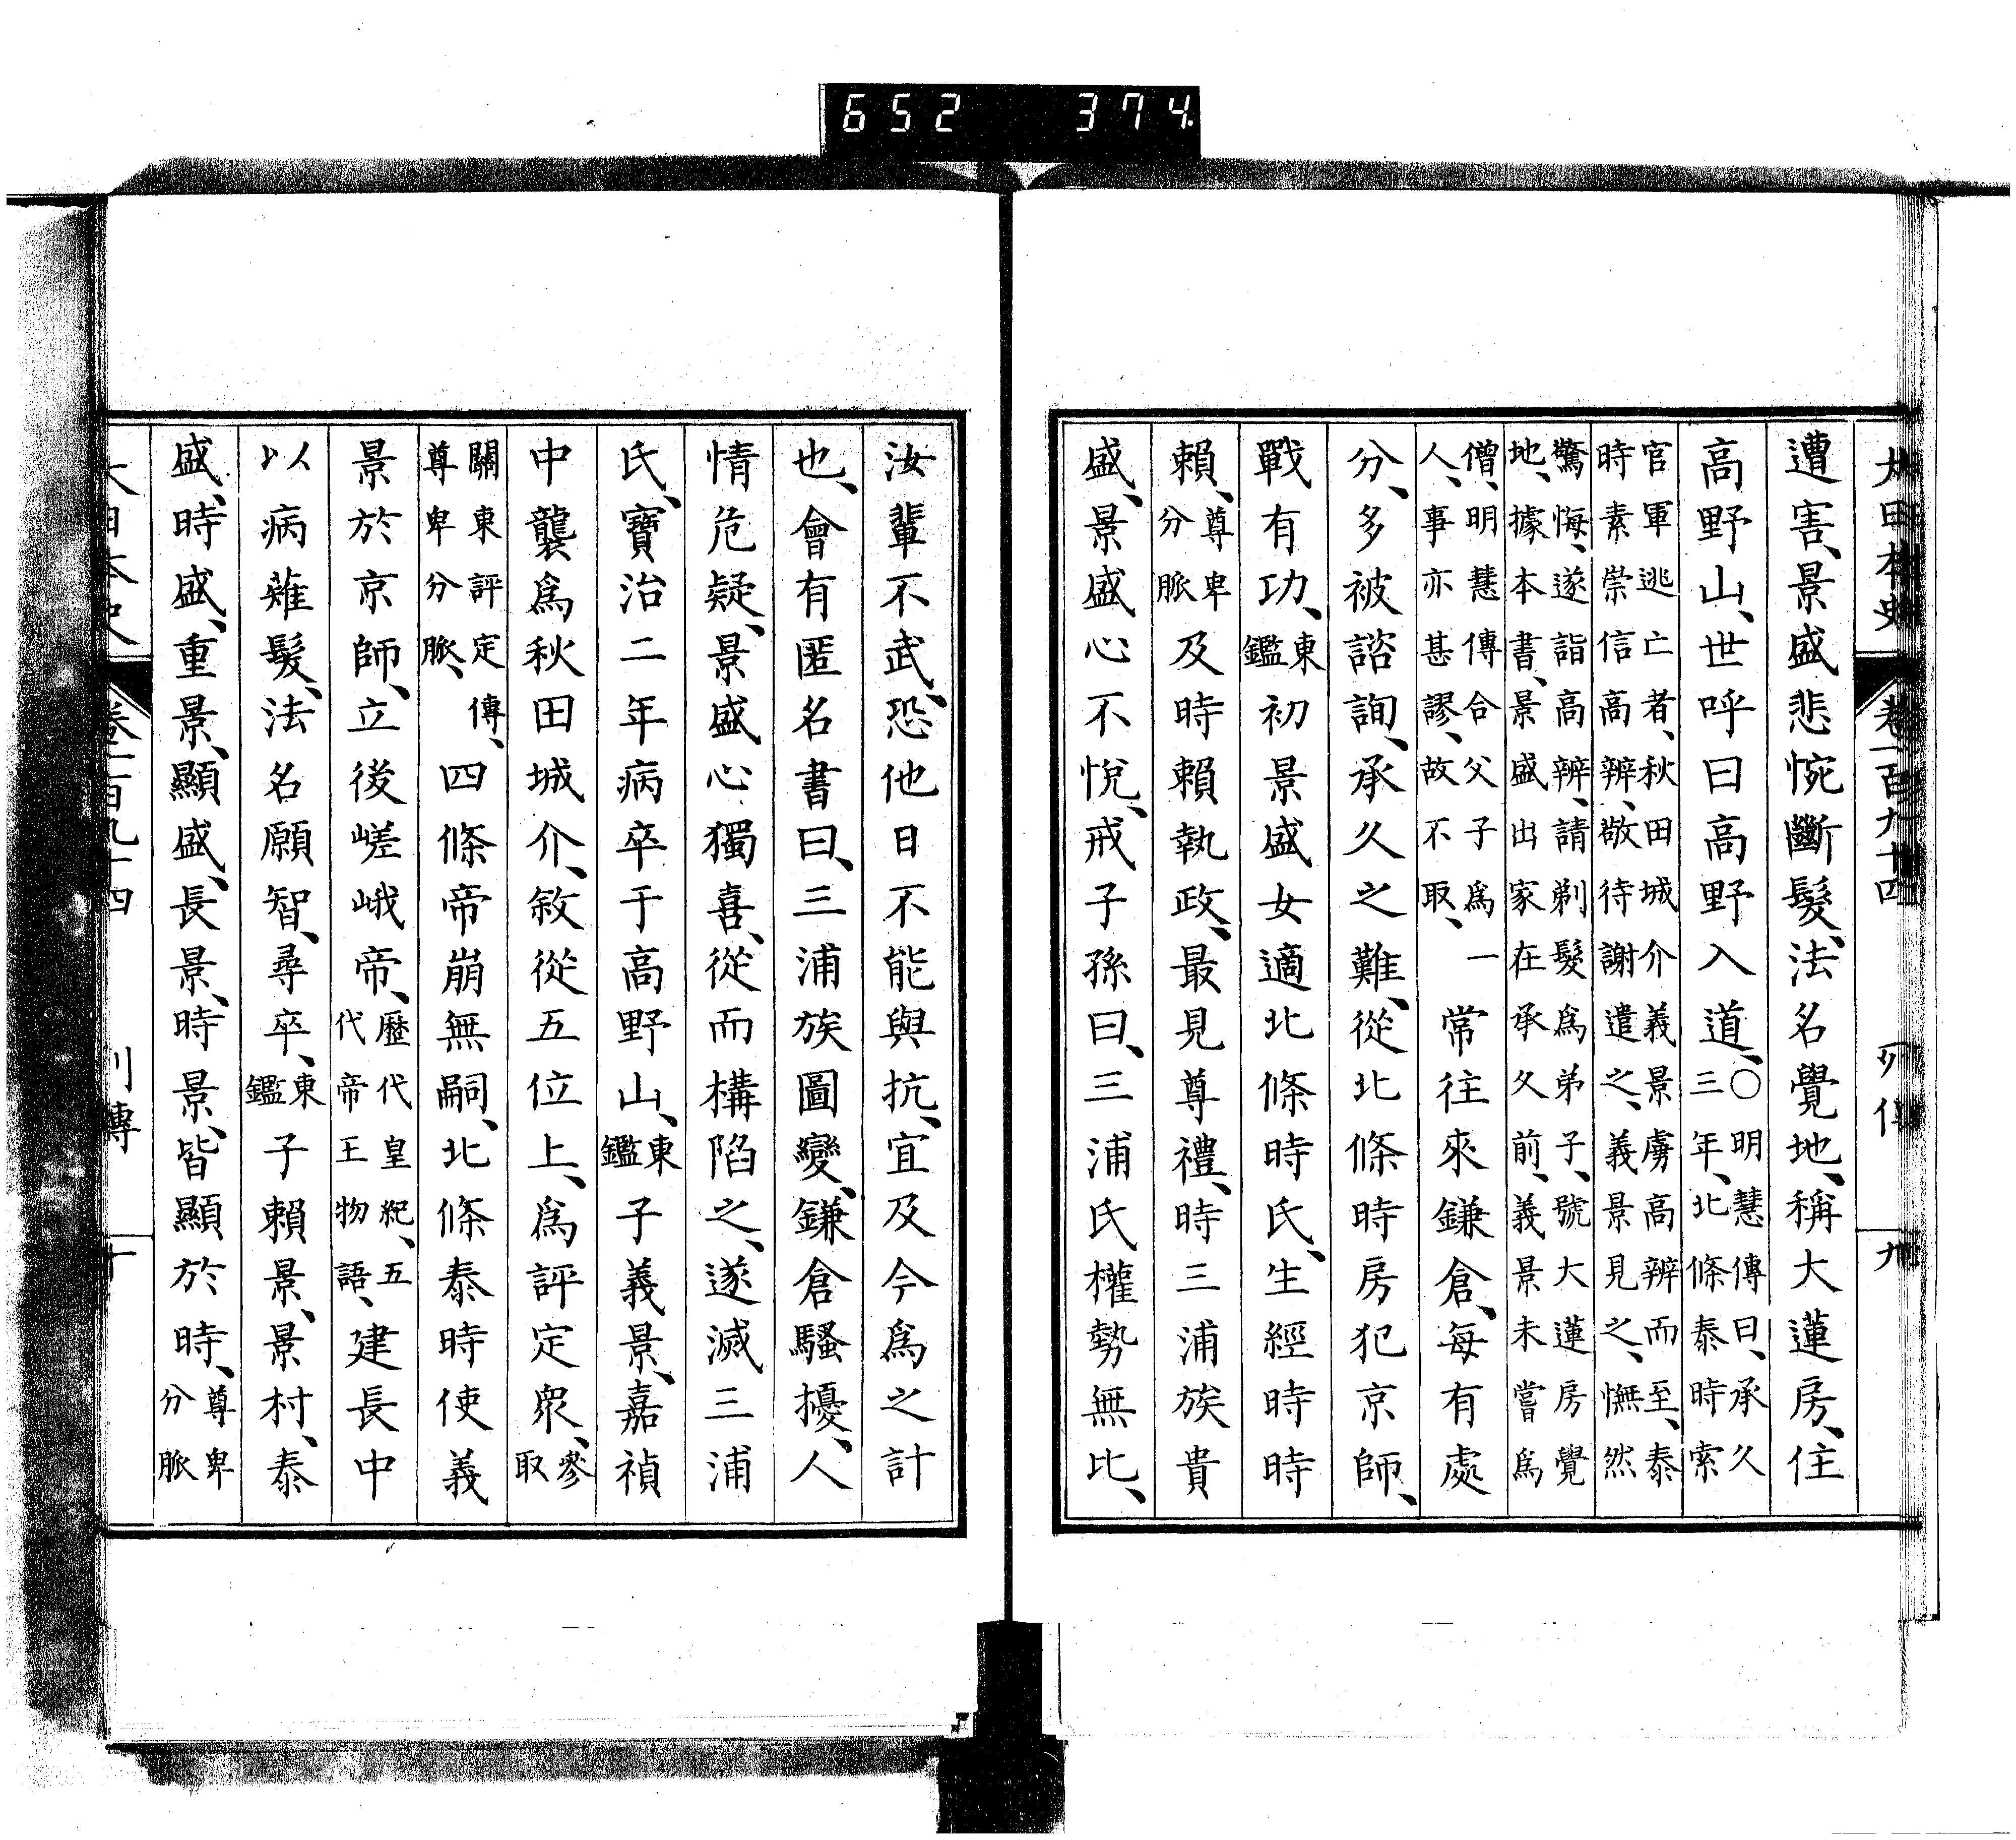 652 374
大日本史 卷一百九十四 列傳 九
遭害、景盛悲惋斷髮、法名覺地、稱大蓮房、住
高野山、世呼曰高野入道、〇明慧傳曰、承久三年、北條泰時索
官軍逃亡者、秋田城介義景虜高辨而至、泰時素崇信高辨、敬待謝遣之、義景見之、憮然
驚悔、遂詣高辨、請剃髮爲弟子、號大蓮房覺地、據本書、景盛出家在承久前、義景未嘗爲
僧、明慧傳合父子爲一人、事亦甚謬、故不取、常往來鎌倉、每有處
分、多被諮詢、承久之難、從北條時房犯京師、
戰有功、東鑑初景盛女適北條時氏、生經時時
賴、尊卑分脈及時賴執政、最見尊禮、時三浦族貴
盛、景盛心不悅、戒子孫曰、三浦氏權勢無比、
汝輩不武、恐他日不能與抗、宜及今爲之計
也、會有匿名書曰、三浦族圖變、鎌倉騷擾、人
情危疑、景盛心獨喜、從而構陷之、遂滅三浦
氏、寶治二年病卒于高野山、東鑑子義景、嘉禎
中襲爲秋田城介、敘從五位上、爲評定衆、參取
關東評定傳、尊卑分脈、四條帝崩無嗣、北條泰時使義
景於京師、立後嵯峨帝、歷代皇紀、五代帝王物語、建長中
以病薙髮、法名願智、尋卒、東鑑子賴景、景村、泰
盛、時盛、重景、顯盛、長景、時景、皆顯於時、尊卑分脈
大日本史 卷一百九十四 列傳 十